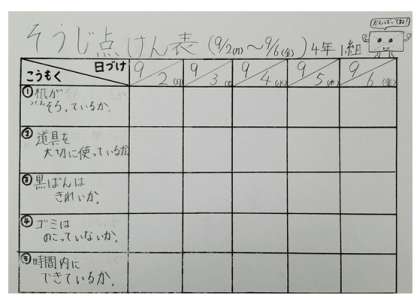 そうじ点けん表(9/2(月)～9/6(金))4年1組
がんばってね!
日づけ
こうもく
9/2(月)
9/3(火)
9/4(水)
9/5(木)
9/6(金)
①机が
そろっているか。
②道具を
大切に使っているか
③黒ばんは
きれいか。
④ゴミは
のこっていないか。
⑤時間内に
できているか。